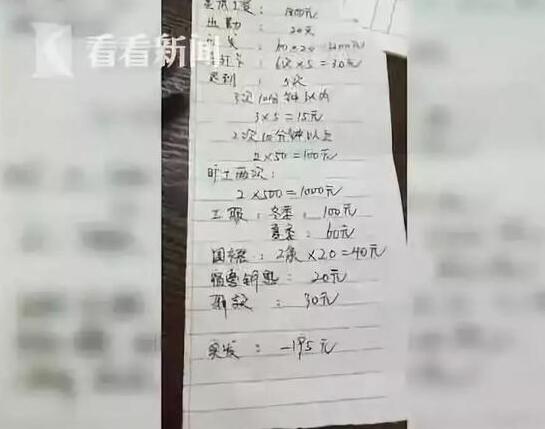 看看新闻
出勤 : 20天
60×20=1200元
打卡 : 6次×5=30元
迟到 : 5次
3次10分钟以内
3×5=15元
2次10分钟以上
2×50=100元
旷工两次:
2×500=1000元
工服 : 冬季 : 100元
夏季 : 60元
围裙 : 2条×20=40元
宿舍钥匙 : 20元
罚款 : 30元
实发 : -195元